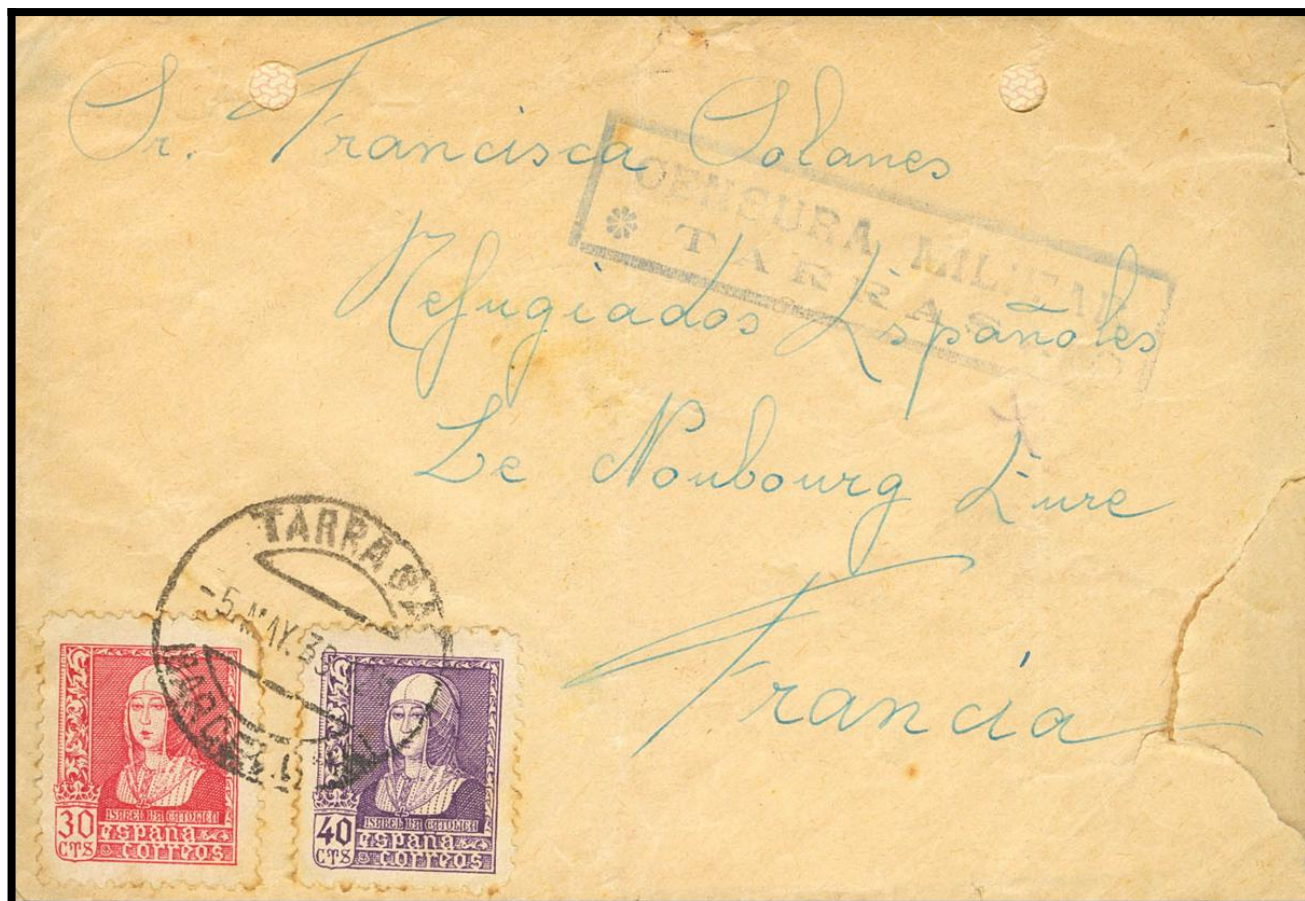 Sr. Francisca Solanes
CENSURA MILITAR
* TARRASA
Refugiados Españoles
Le Noubourg Eure
Francia
TARRASA
-5 MAY. 39
(BARCELONA)
30
CTS
ISABEL LA CATOLICA
españa
correos
40
CTS
ISABEL LA CATOLICA
españa
correos